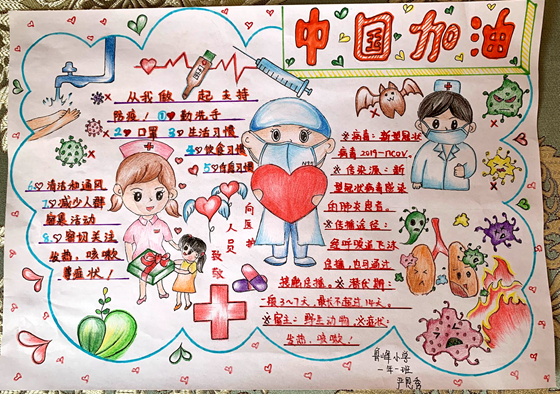 中国加油
从我做起 支持
防疫！①勤洗手
2 口罩 3 生活习惯
4 饮食习惯
5
6 清洁和通风
7 减少人群
聚集活动
8 密切关注
发热、咳嗽
等症状！
向医护
人员
致敬
N95
※病毒：新型冠状
病毒 2019-nCoV.
※传染源：新
型冠状病毒感染
的肺炎患者。
※传播途径：
经呼吸道飞沫
传播，也可通过
接触传播。※潜伏期：
一般3~7天，最长不超过14天。
※宿主：野生动物 ※症状：
发热、咳嗽！
小学
一年一班